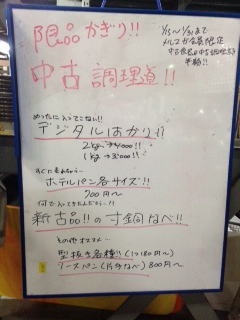 限品かぎり!!
1/15〜1/31まで
メルマガ会員限定
中古食器・中古調理道具
半額!!
中古調理道!!
めったに入ってこない!!
デジタルはかり!!
2kg→4000!!
1kg→3000!!
すぐに売れちゃう…
ホテルパン各サイズ!!
700円〜
何で入ってきたんだろう…!!
新古品!!の寸銅なべ!!
その他オススメ…
型抜き各種!!(1つ180円〜)
ソースパン(片手なべ)800円〜